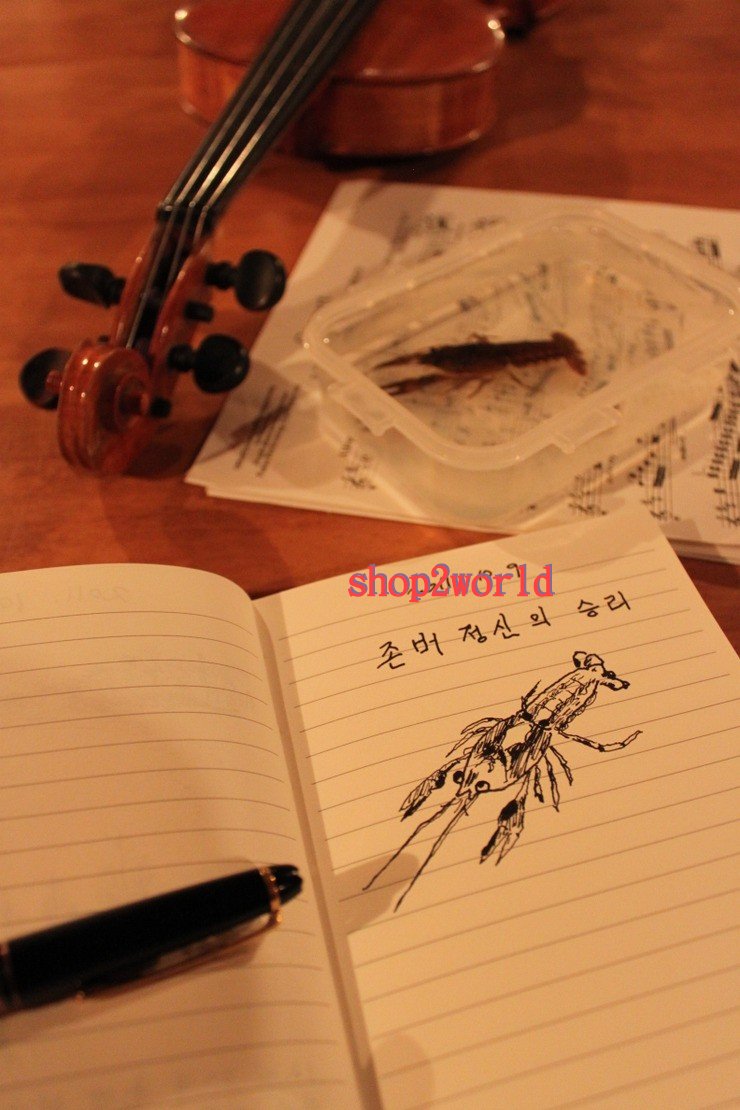 shop2world
존버 정신의 승리